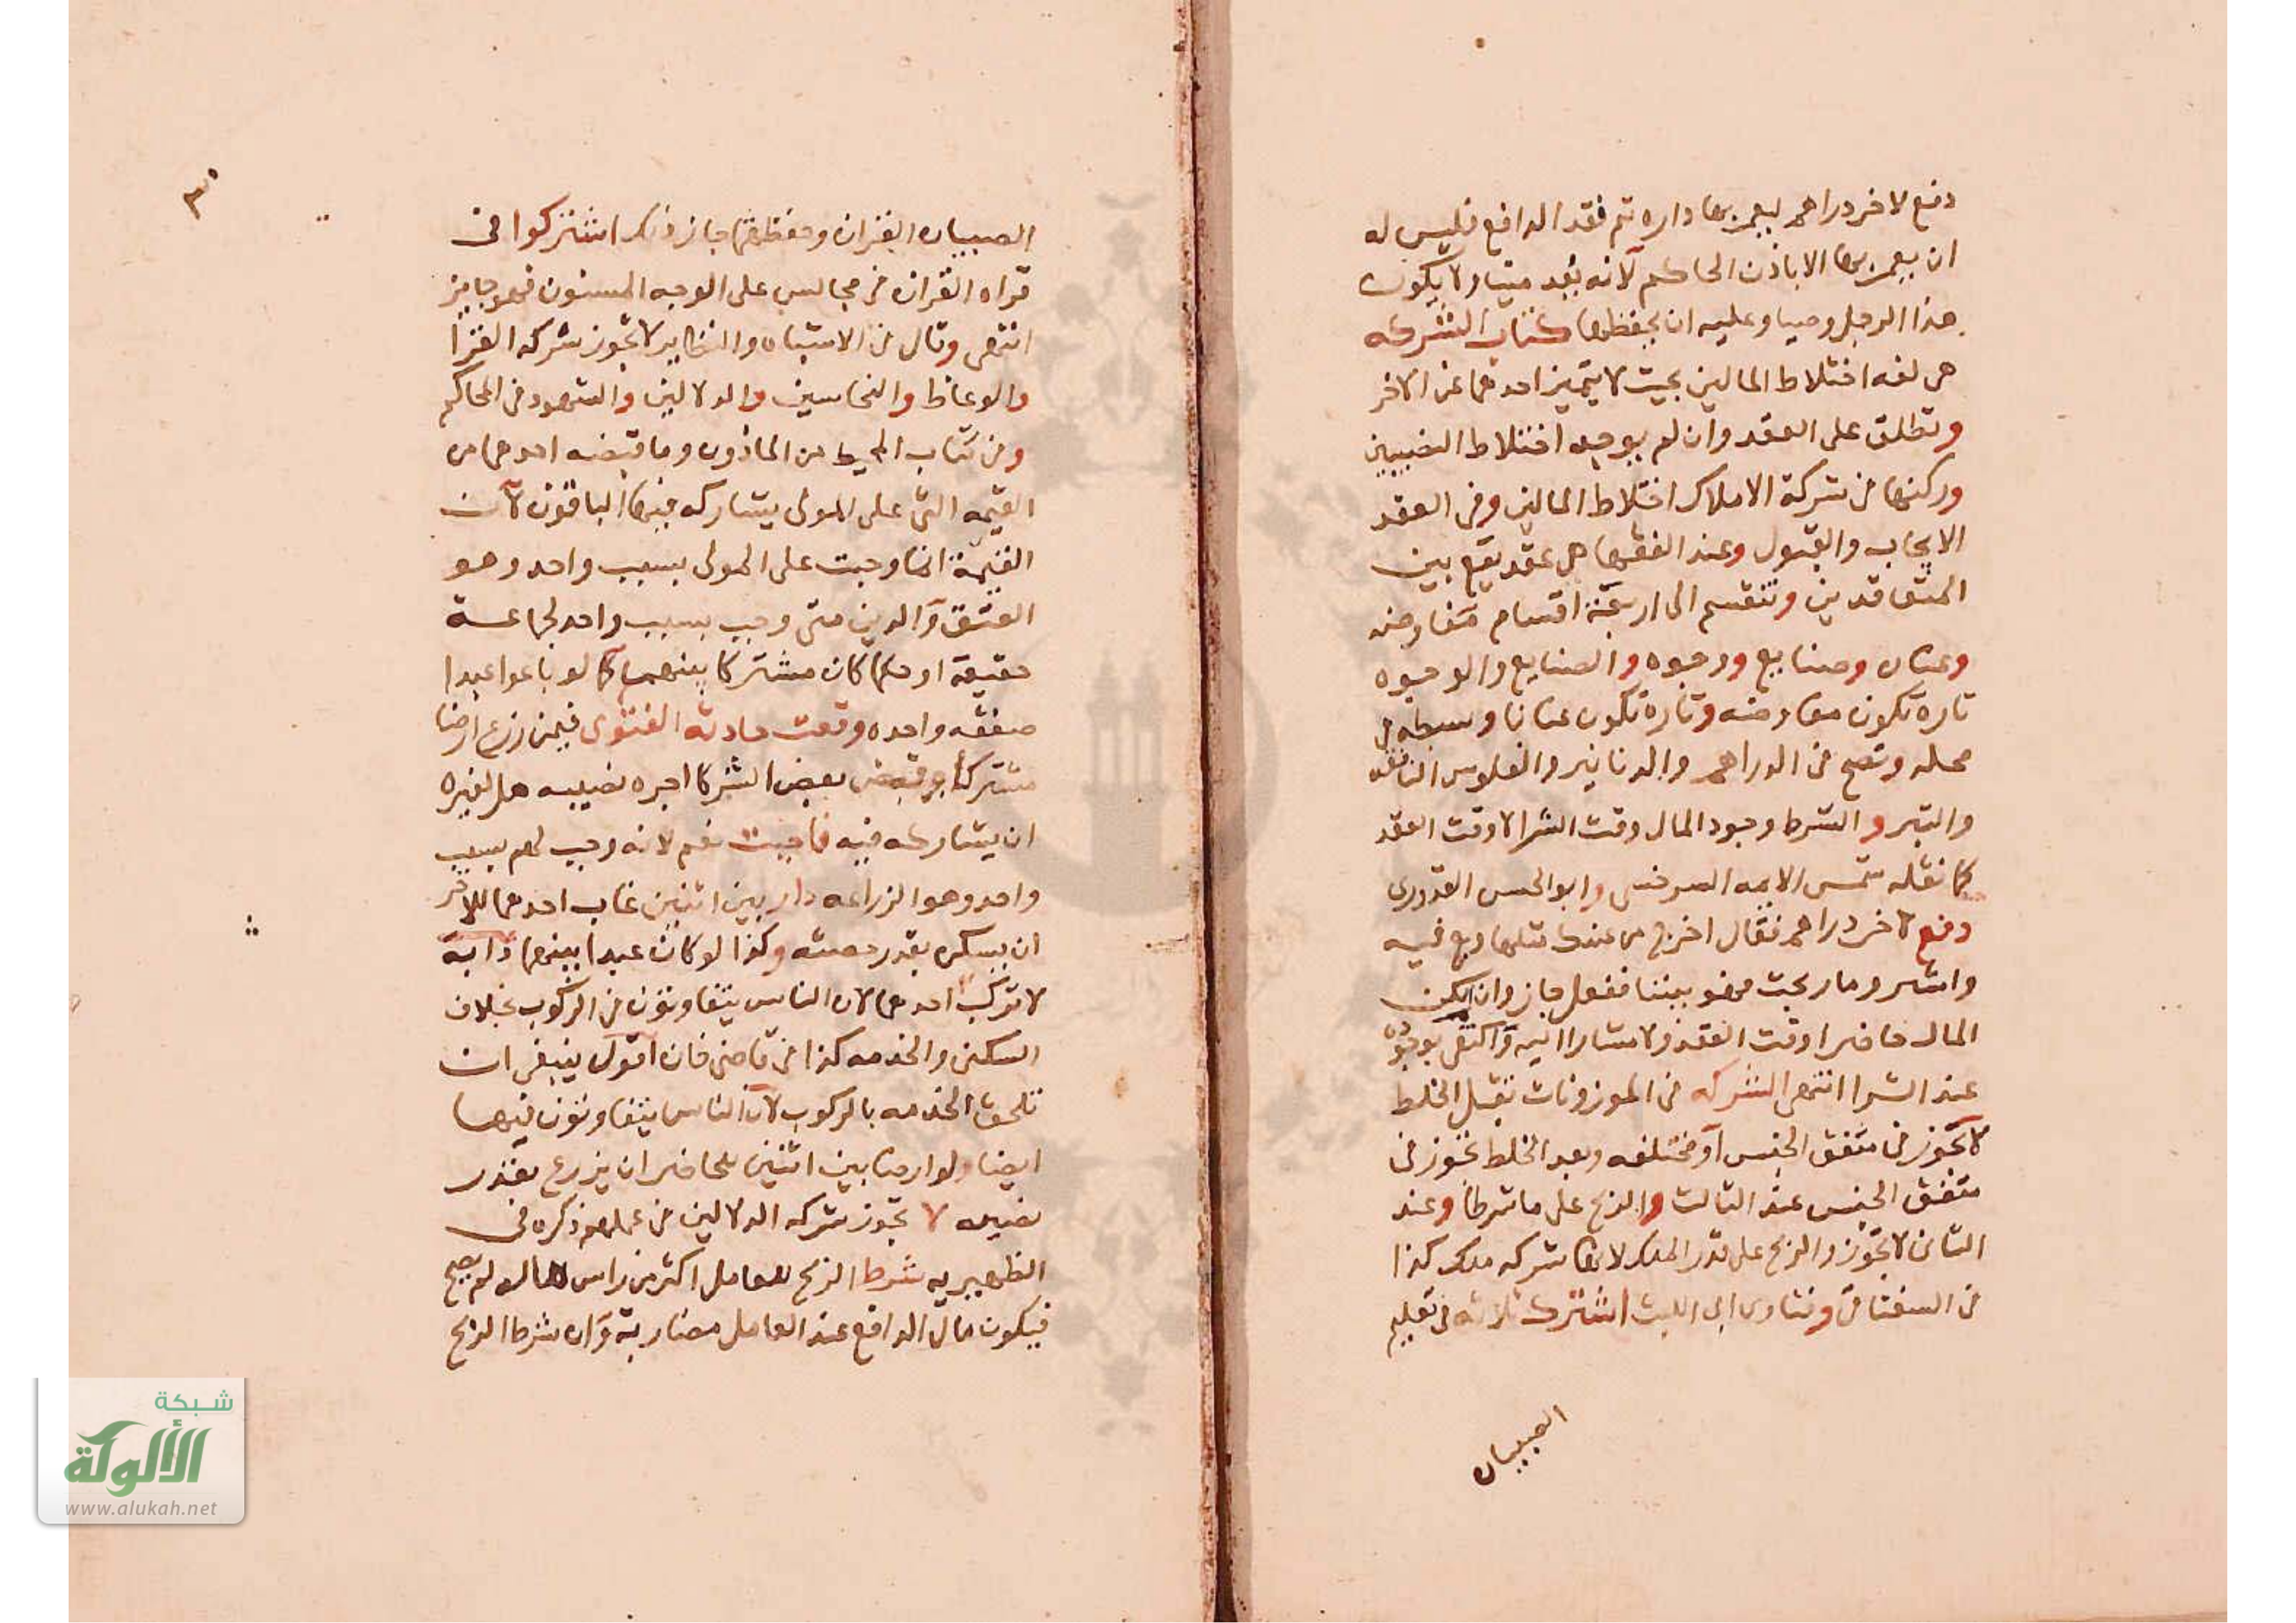 دفع لاخر دراهم ليعمر بها داره ثم فقد الدافع فليس له
ان يعمر بها الا باذن الحاكم لانه يعد ميتا ولا يكون
هذا الرجل وصيا وعليه ان يحفظها كتاب الشركه
هى لغه اختلاط المالين بحيث لا يتميز احدهما عن الاخر
وتطلق على العقد وان لم يوجد اختلاط النصيبين
وركنها فى شركة الاملاك اختلاط المالين وفى العقد
الايجاب والقبول وعند الفقها هى عقد يقع بين
المتعاقدين وتنقسم الى اربعة اقسام مفاوضه
وعنان وصنايع ووجوه والصنايع والوجوه
تارة تكون مفاوضه وتارة تكون عنانا وبسطه فى
محله وتصح فى الدراهم والدنانير والفلوس النافقه
والتبر والشرط وجود المال وقت الشرا لا وقت العقد
كما نقله شمس الايمه السرخسى وابو الحسن القدورى
دفع لاخر دراهم فقال اخرج من عندك مثلها وبع فيه
واشتر وما ربحت فهو بيننا ففعل جاز وان لم يكن
المال حاضرا وقت العقد ولا مشارا اليه واكتفى بوجوده
عند الشرا انتهى الشركه فى الموزونات قبل الخلط
لا تجوز فى متفق الجنس او مختلفه وبعد الخلط تجوز فى
متفق الجنس عند الثالث والربح على ما شرطا وعند
الثانى لا تجوز والربح على قدر الملك لانها شركه ملك كذا
فى السغناقى وفتاوى ابى الليث اشترك ثلاثه فى تعليم
الصبيان
٣٠
الصبيان القران وحفظهما جاز ذلك اشتركوا فى
قراه القران فى مجالس على الوجه المسنون فهو جايز
انتهى وقال فى الاشباه والنظاير لا تجوز شركه القرا
والوعاظ والنخاسين والدلالين والشهود فى المحاكم
وفى كتاب المحيط من الماذون وما قبضه احدهما من
القيمه التى على المولى يشاركه فيها الباقون لان
القيمة انما وجبت على المولى بسبب واحد وهو
العتق والدين متى وجب بسبب واحد لجماعة
حقيقة او حكما كان مشتركا بينهم كما لو باعوا عبدا
صفقه واحده وقعت حادثه الفتوى فيمن زرع ارضا
مشتركا وقبض بعض الشركا اجره نصيبه هل لغيره
ان يشاركه فيه فاجبت نعم لانه وجب لهم بسبب
واحد وهو الزراعه دار بين اثنين غاب احدهما للاخر
ان يسكن بقدر حصته وكذا لو كان عبدا بينهما دابة
لا تركب احدهما لان الناس يتفاوتون فى الركوب بخلاف
السكنى والخدمه كذا فى قاضى خان اقول ينبغى ان
تلحق الخدمه بالركوب لان الناس يتفاوتون فيها
ايضا ولو ارضا بين اثنين للحاضر ان يزرع بقدر
نصيبه لا تجوز شركه الدلالين فى عملهم ذكره فى
الظهيريه شرط الربح للعامل اكثر من راس ماله لم يصح
فيكون مال الدافع عند العامل مضاربة وان شرط الربح
شبكة
الألوكة
www.alukah.net